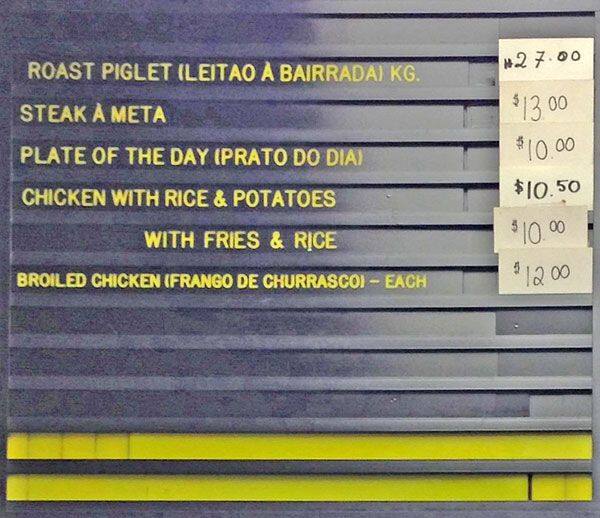 ROAST PIGLET (LEITAO À BAIRRADA) KG. $27.00
STEAK À META $13.00
PLATE OF THE DAY (PRATO DO DIA) $10.00
CHICKEN WITH RICE & POTATOES $10.50
WITH FRIES & RICE $10.00
BROILED CHICKEN (FRANGO DE CHURRASCO) – EACH $12.00